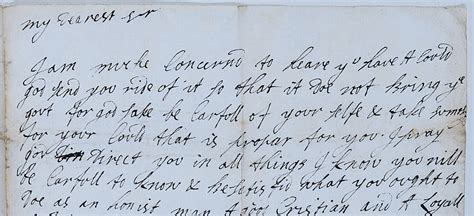 my dearest sr
I am much concernd to heare ye have A Could
god send you ride of it so that it doe not bring ye
govt for god sake be carfull of your selfe & take some
for your could that is propar for you I pray
god Direct you in all things I know you will
be carfull to know & be satisfid what you ought to
doe as an honist man A good Cristian and A Loyall